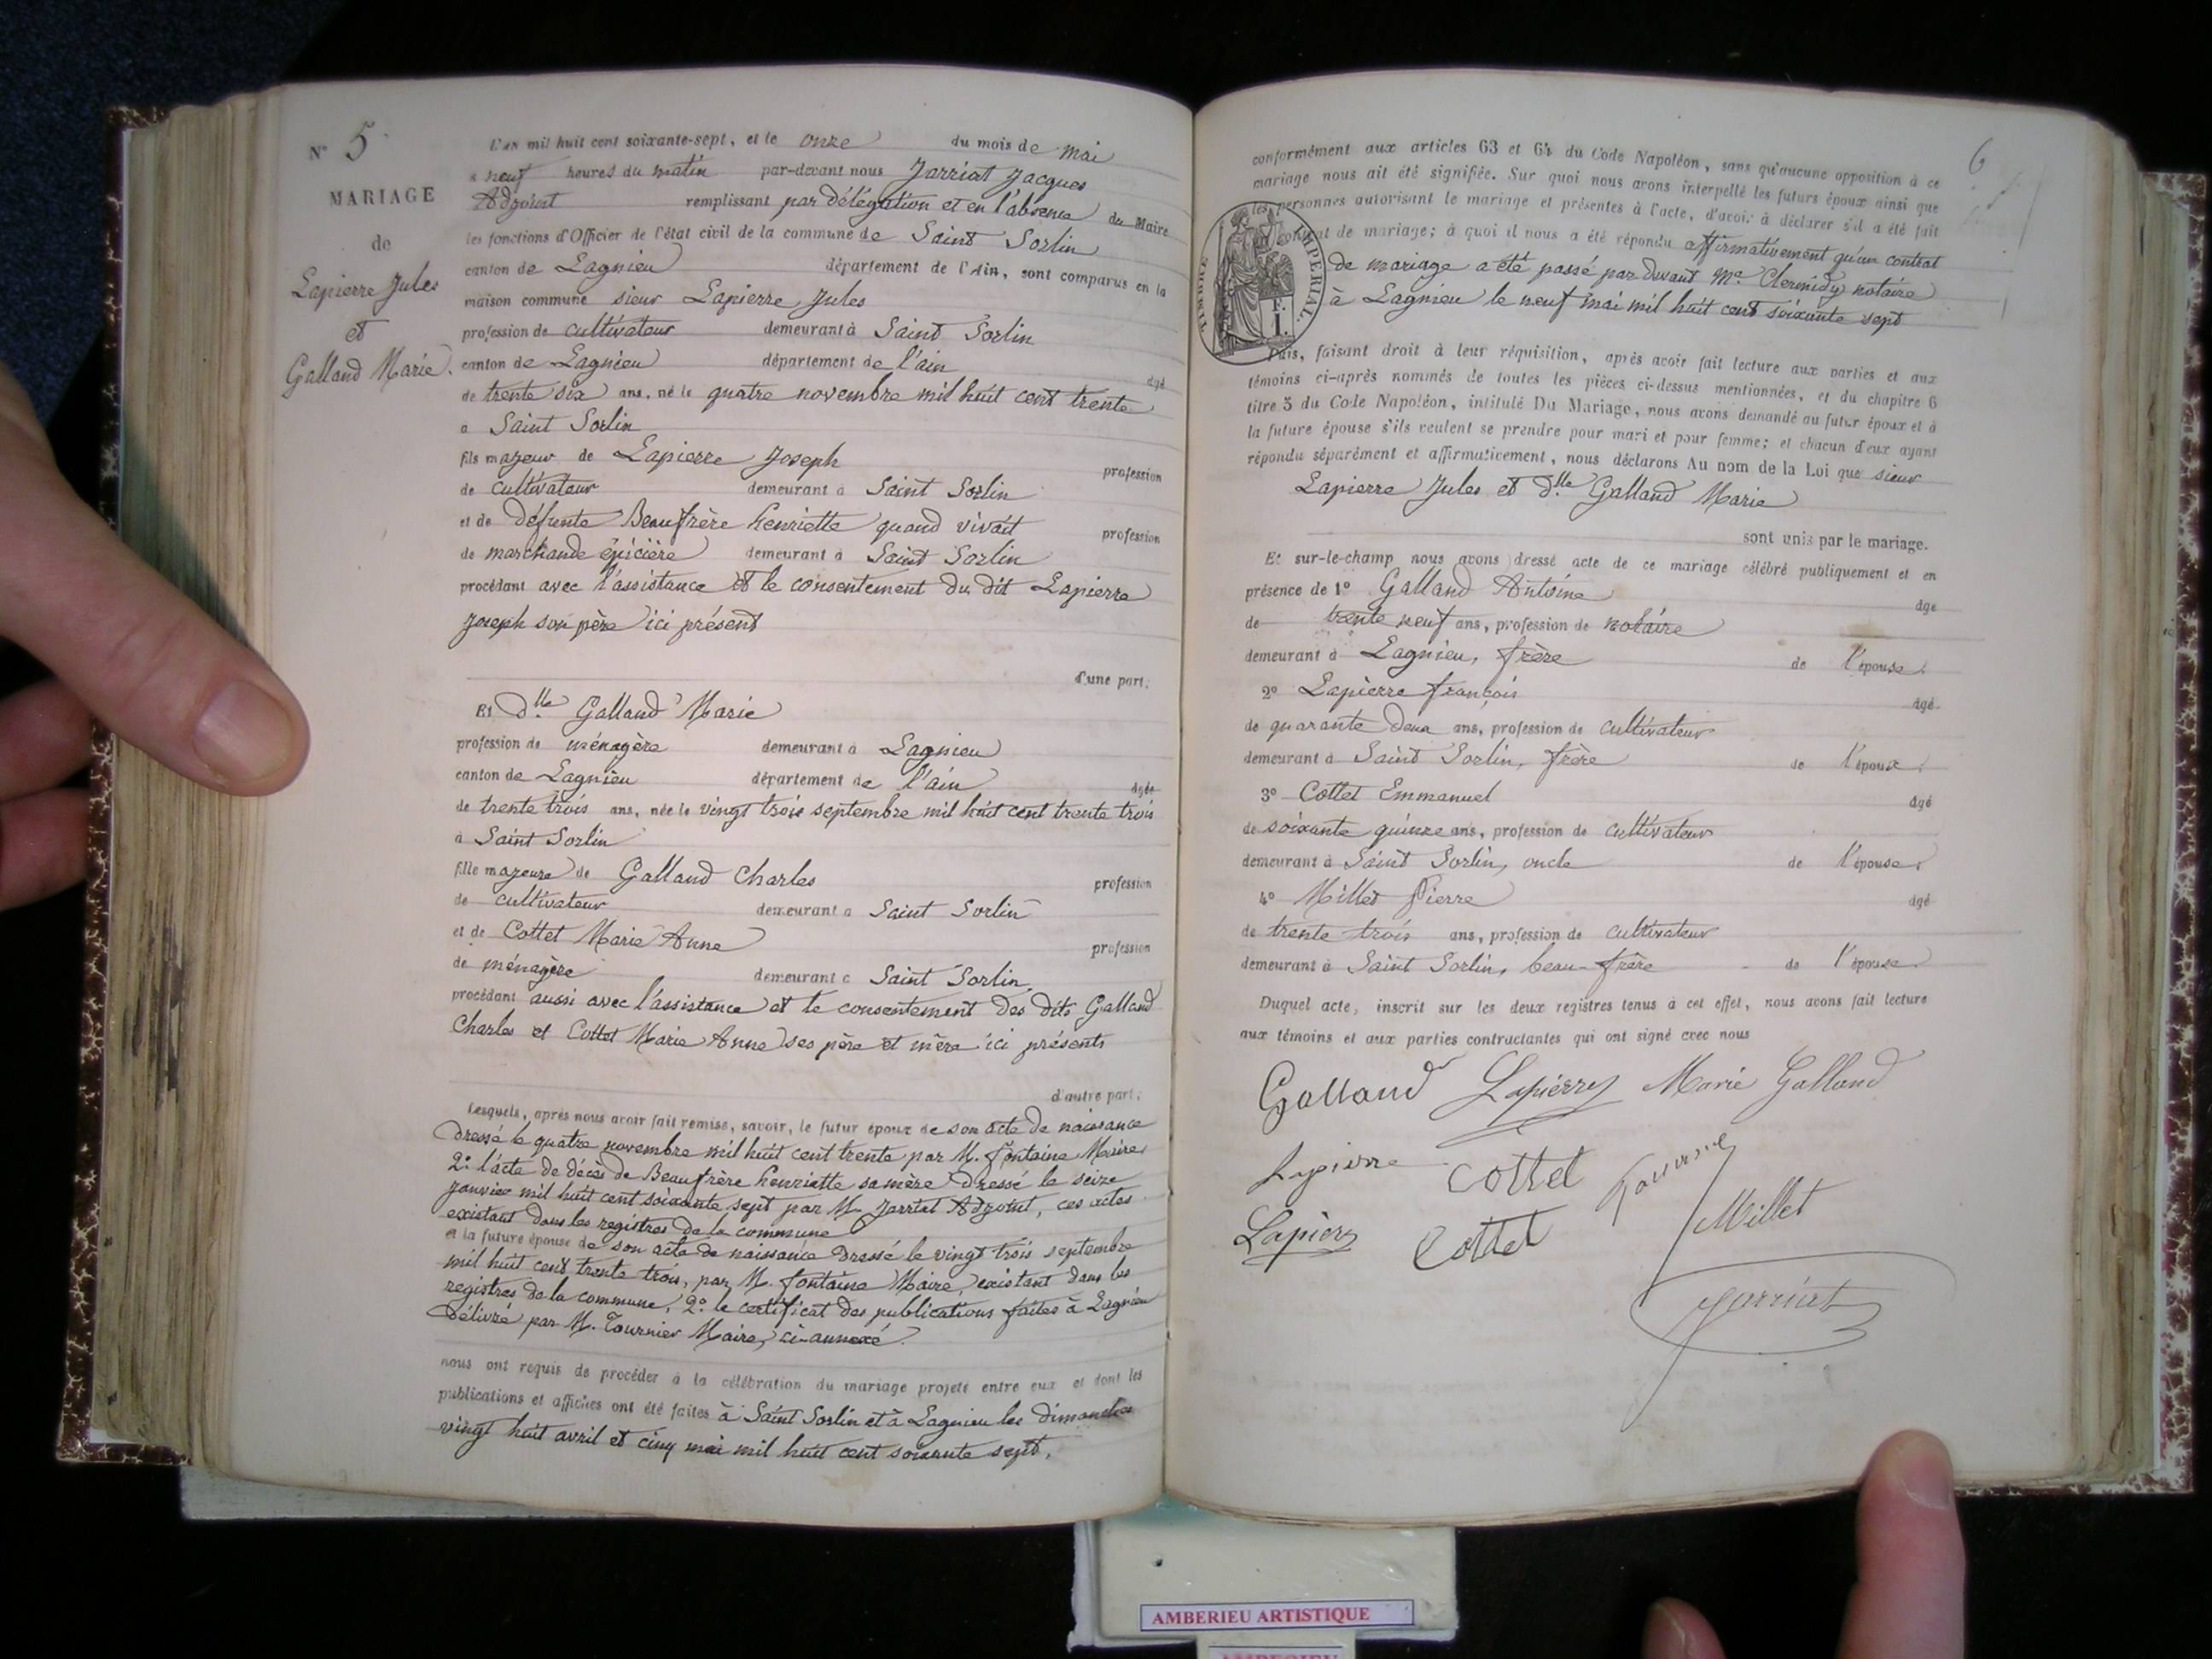 N° 5
MARIAGE
de
Lapierre Jules
et
Galland Marie.
L'an mil huit cent soixante-sept, et le onze du mois de mai
à neuf heures du matin par-devant nous Jarriat Jacques
Adjoint remplissant par délégation et en l'absence du Maire
les fonctions d'Officier de l'état civil de la commune de Saint Sorlin
canton de Lagnieu département de l'Ain, sont comparus en la
maison commune sieur Lapierre Jules
profession de cultivateur demeurant à Saint Sorlin
canton de Lagnieu département de l'ain âgé
de trente six ans, né le quatre novembre mil huit cent trente
à Saint Sorlin
fils majeur de Lapierre Joseph profession
de cultivateur demeurant à Saint Sorlin
et de défunte Beaufrère henriette quand vivait profession
de marchande épicière demeurant à Saint Sorlin
procédant avec l'assistance et le consentement du dit Lapierre
Joseph son père ici présent
d'une part;
Et dlle Galland Marie
profession de ménagère demeurant à Lagnieu
canton de Lagnieu département de l'ain âgée
de trente trois ans, née le vingt trois septembre mil huit cent trente trois
à Saint Sorlin
fille majeure de Galland Charles profession
de cultivateur demeurant à Saint Sorlin
et de Cottet Marie Anne profession
de ménagère demeurant à Saint Sorlin
procédant aussi avec l'assistance et le consentement des dits Galland
Charles et Cottet Marie Anne ses père et mère ici présents
d'autre part;
Lesquels, après nous avoir fait remise, savoir, le futur époux de son acte de naissance
dressé le quatre novembre mil huit cent trente par M. fontaine Maire
2° l'acte de décès de Beaufrère henriette sa mère dressé le seize
janvier mil huit cent soixante sept par M. Jarriat Adjoint, ces actes
existant dans les registres de la commune
et la future épouse de son acte de naissance dressé le vingt trois septembre
mil huit cent trente trois, par M. fontaine Maire, existant dans les
registres de la commune, 2° le certificat des publications faites à Lagnieu
délivré par M. Tournier Maire, ci-annexé.
nous ont requis de procéder à la célébration du mariage projeté entre eux et dont les
publications et affiches ont été faites à Saint Sorlin et à Lagnieu les dimanches
vingt huit avril et cinq mai mil huit cent soixante sept,
6
conformément aux articles 63 et 64 du Code Napoléon, sans qu'aucune opposition à ce
mariage nous ait été signifiée. Sur quoi nous avons interpellé les futurs époux ainsi que
les personnes autorisant le mariage et présentes à l'acte, d'avoir à déclarer s'il a été fait
contrat de mariage; à quoi il nous a été répondu affirmativement qu'un contrat
de mariage a été passé par devant Me notaire
à Lagnieu le neuf mai mil huit cent soixante sept
TIMBRE IMPERIAL.
Puis, faisant droit à leur réquisition, après avoir fait lecture aux parties et aux
témoins ci-après nommés de toutes les pièces ci-dessus mentionnées, et du chapitre 6
titre 5 du Code Napoléon, intitulé Du Mariage, nous avons demandé au futur époux et à
la future épouse s'ils veulent se prendre pour mari et pour femme; et chacun d'eux ayant
répondu séparément et affirmativement, nous déclarons Au nom de la Loi que sieur
Lapierre Jules et dlle Galland Marie
sont unis par le mariage.
Et sur-le-champ nous avons dressé acte de ce mariage célébré publiquement et en
présence de 1° Galland Antoine âgé
de trente neuf ans, profession de notaire
demeurant à Lagnieu, frère de l'épouse.
2° Lapierre françois âgé
de quarante deux ans, profession de cultivateur
demeurant à Saint Sorlin, frère de l'époux.
3° Cottet Emmanuel âgé
de soixante quinze ans, profession de cultivateur
demeurant à Saint Sorlin, oncle de l'épouse.
4° Millet Pierre âgé
de trente trois ans, profession de cultivateur
demeurant à Saint Sorlin, beau-frère de l'épouse.
Duquel acte, inscrit sur les deux registres tenus à cet effet, nous avons fait lecture
aux témoins et aux parties contractantes qui ont signé avec nous
Galland Lapierre Marie Galland
Lapierre Cottet
Millet
Lapierre Cottet
Jarriat
AMBERIEU ARTISTIQUE
AMBERIEU